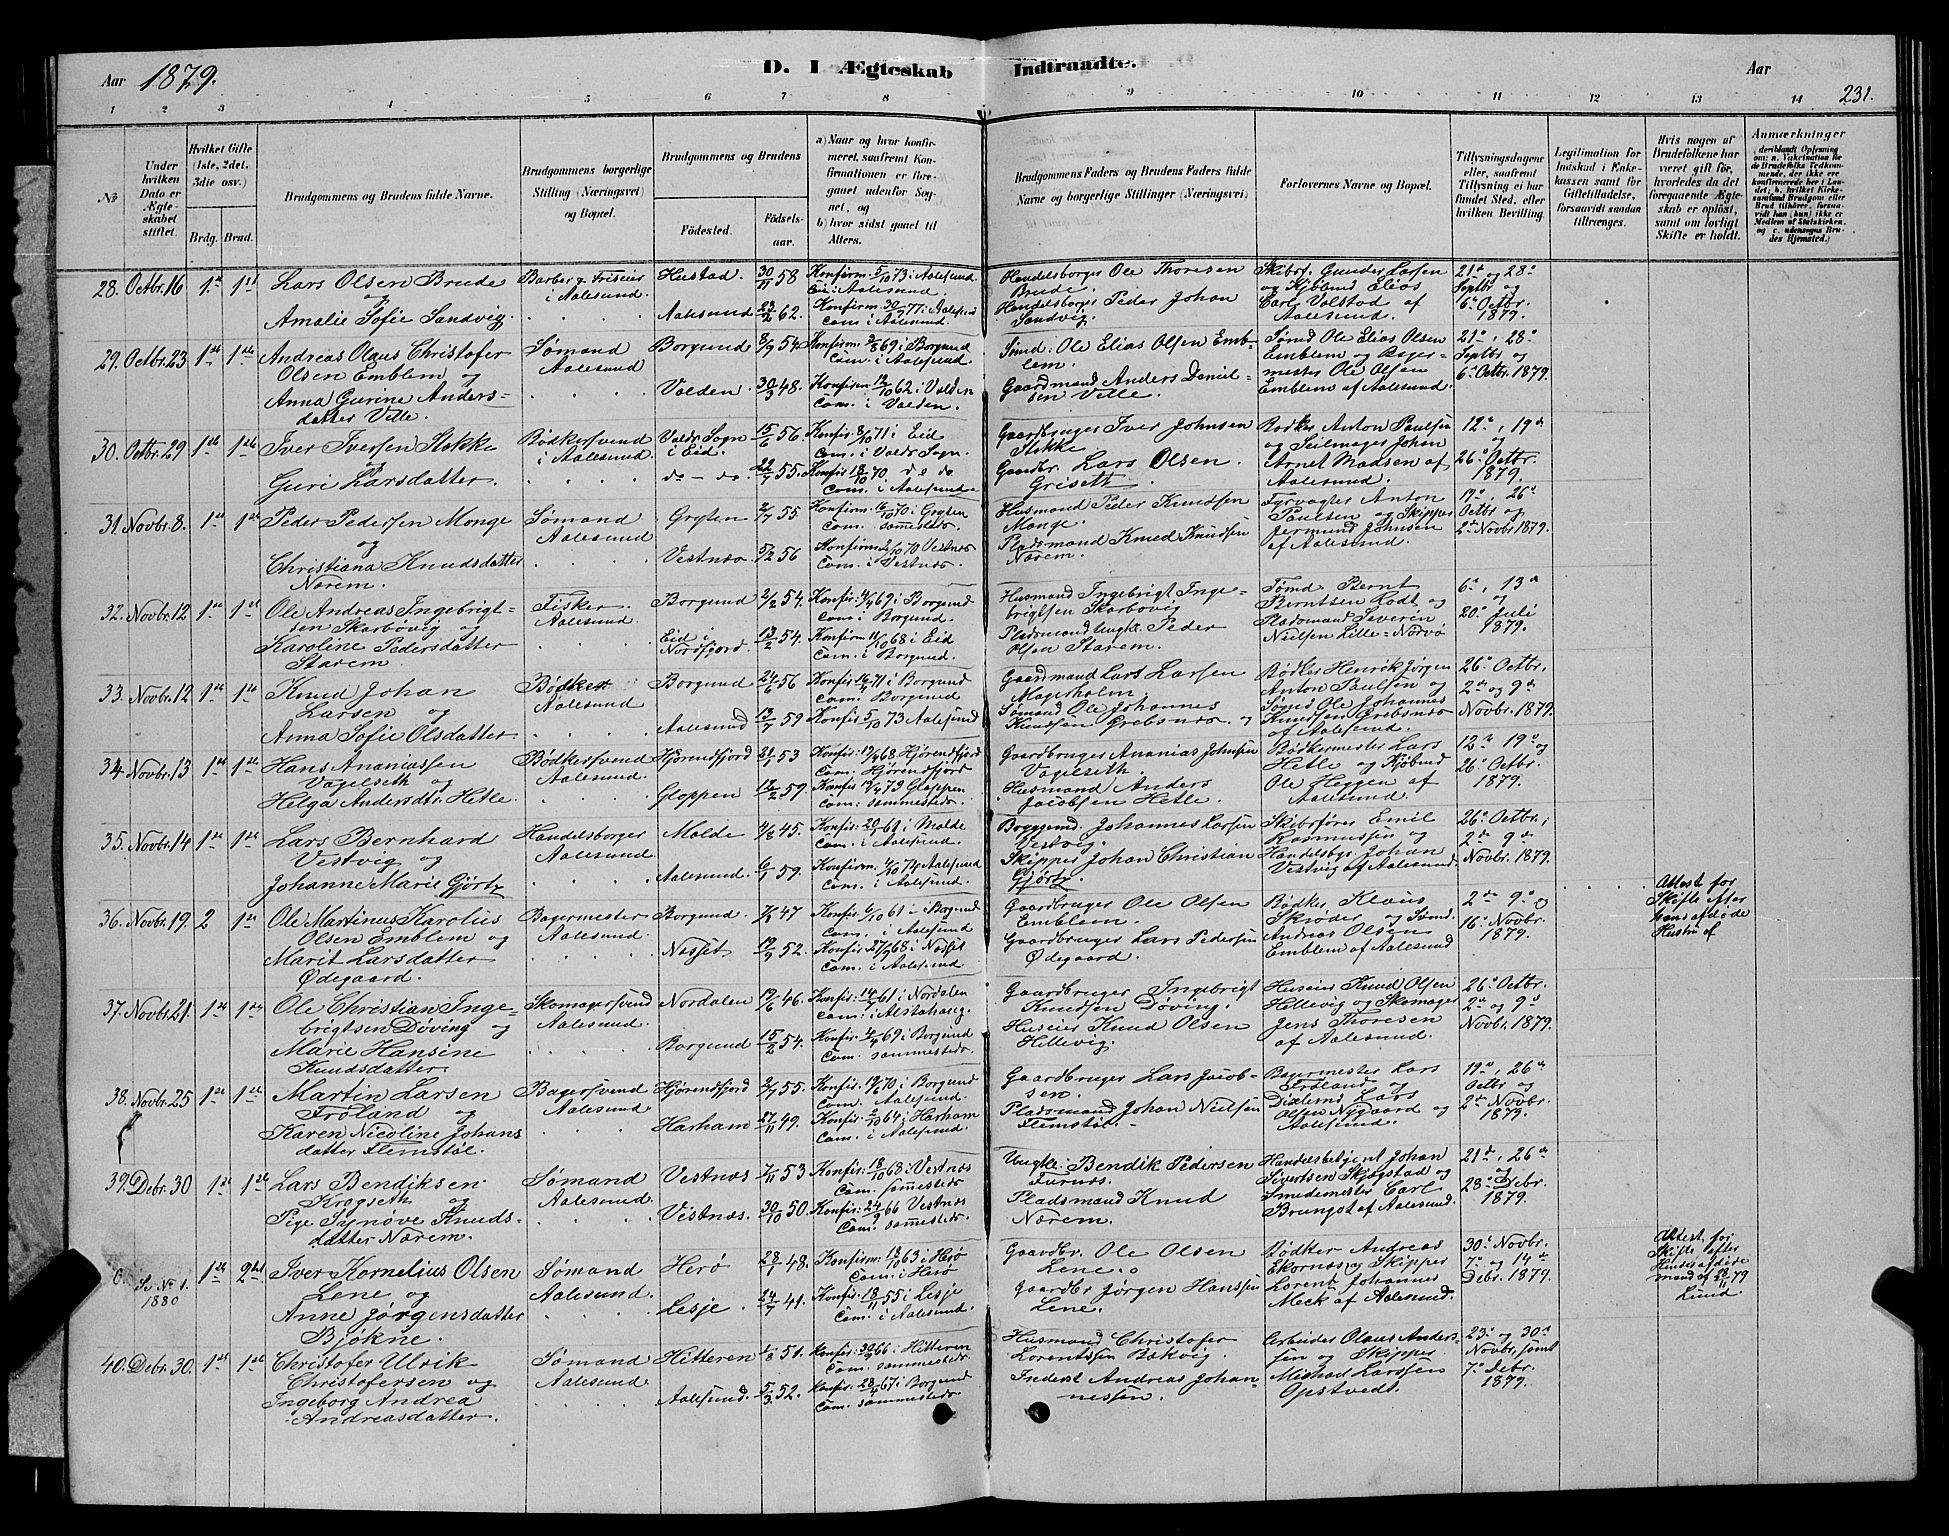 Aar 1879.
D. I Ægteskab Indtraadte.
Aar
231.
1 2 3 4 5 6 7 8 9 10 11 12 13 14
No
Under hvilken Dato er Ægteskabet stiftet.
Hvilket Gifte (1ste, 2det, 3die osv.)
Brdg. Brud.
Brudgommens og Brudens fulde Navne.
Brudgommens borgerlige Stilling (Næringsvei) og Bopæl.
Brudgommens og Brudens
Födested. Födsels-aar.
a) Naar og hvor konfirmeret, saafremt Konfirmationen er foregaaet udenfor Sognet, og
b) hvor sidst gaaet til Alters.
Brudgommens Faders og Brudens Faders fulde Navne og borgerlige Stillinger (Næringsvei)
Forlovernes Navne og Bopæl.
Tillysningsdagene eller, saafremt Tillysning ei har fundet Sted, efter hvilken Bevilling.
Legitimation for Indskud i Enkekassen samt for Giftetilladelse, forsaavidt saadan tiltrænges.
Hvis nogen af Brudefolkene har været gift før, hvorledes da det foregaaende Ægteskab er oplöst, samt om lovligt Skifte er holdt.
Anmærkninger
28. Octbr. 16 1ste 1ste
Lars Olsen Brude
og
Amalie Sofie Sandvig.
Barber & Friseur
i Aalesund.
Hustad. 30/11 58
Aalesund 23/2 62.
Konfirm. 5/10 73 i Aalesund
Com. i Aalesund.
Konfirm. 30/9 77 i Aalesund
Com. i Aalesund.
Handelsborger Ole Thoresen
Brude.
Handelsborger Peder Johan
Sandvig.
Skibsf. Gunder Larsen
og Kjöbmd Elias
Carl Volstad af
Aalesund.
21de og 28de
Septbr og
6te Octbr.
1879.
29. Octbr. 23 1ste 1ste
Andreas Olaus Christofer
Olsen Emblem og
Anna Gurine Anders-
datter Ville.
Sømand
Aalesund
Borgund 8/9 54.
Volden 30/3 48.
Konfirm. 69 i Borgund
Com. i Aalesund.
Konfirm. 12/10 62 i Volden
Com. i Volden.
Smd: Ole Elias Olsen Emb-
lem.
Gaardmand Anders Daniel-
sen Ville.
Sømd Ole Elias Olsen
Emblem og Bager-
mester Ole Olsen
Emblem af Aalesund.
21de, 28de
Septbr og
6te Octbr. 1879.
30. Octbr. 29 1ste 1ste
Iver Iversen Stokke
og
Guri Larsdatter.
Bødkersvend
i Aalesund.
Volds Sogn
i Eid. 15/6 56.
do - do. 22/7 55.
Konfir. 8/10 71 i Eid
Com. i Volds Sogn.
Konfir. 18/10 70 do do
Com. i Aalesund.
Gaardbruger Iver Johnsen
Stokke
Gaardbr. Lars Olsen
Griseth.
Bødker Anton Paulsen
og Seilmager Johan
Arnet Madsen af
Aalesund.
12te, 19de
og
26de Octbr.
1879.
31. Novbr. 8. 1ste 1ste
Peder Pedersen Monge
og
Christiana Knudsdatter
Nærem.
Sømand
Aalesund
Grytten 2/7 55.
Vestnæs 5/2 56
Konfirm. 16/10 70 i Grytten
Com. sammesteds.
Konfirm. 2/10 70 Vestnæs
Com. i Vestnæs.
Husmand Peder Knudsen
Monge.
Pladsmand Knud Knudsen
Nærem.
Fyrvogter Anton
Paulsen og Skipper
Jermund Johnsen
af Aalesund.
19de, 26de
Octbr og
2den Novbr 1879.
32. Novbr. 12 1ste 1ste
Ole Andreas Ingebrigt-
sen Skarbøvig og
Karoline Pedersdatter
Starem.
Fisker
Aalesund.
Borgund 2/2 54.
Eid i
Nordfjord. 13/2 54.
Konfir. 4/4 69 i Borgund
Com. i Borgund.
Konfir. 11/10 68 i Eid
Com. i Borgund.
Husmand Ingebrigt Inge-
brigtsen Skarbøvig
Pladsmand Ungk. Peder
Olsen Starem.
Sømd Bernt
Berntsen Rødt og
Pladsmand Severin
Nielsen Lille-Nørvø
6te, 13de
og
20de Juli
1879.
33. Novbr. 12 1ste 1ste
Knud Johan
Larsen og
Anna Sofie Olsdatter.
Bødker
Aalesund
Borgund 24/6 56
Aalesund 13/7 59
Konfir. 16/4 71 i Borgund
Com. Borgund
Konfir. 5/10 73 Aalesund
Gaardmand Lars Larsen
Magerholm.
Sømand Ole Johannes
Knudsen Grebsnæs
Bødker Henrik Jørgen
Anton Paulsen og
Sømd Ole Johannes
Knudsen Grebsnæs
af Aalesund.
26de Octbr.
2den og 9de
Novbr. 1879.
34. Novbr. 13 1ste 1ste
Hans Ananiassen
Vagleseth og
Helga Andersdtr. Hetle.
Bødkersvend
Aalesund.
Hjörendfjord 21/1 53
Gloppen 13/2 59.
Konfir: 68 Hjörendfjord
Com: Hjörendfjord
Konfir 73 Gloppen
Com: sammesteds.
Gaardbruger Ananias Johnsen
Vagleseth.
Husmand Anders
Jacobsen Hetle.
Bødkermester Lars
Hetle og Kjöbmd
Ole Heggen af
Aalesund.
12te 19de og
26de Octbr.
1879.
35. Novbr. 14 1ste 1ste
Lars Bernhard
Vestvig og
Johanne Marie Gjørtz
Handelsborger
Aalesund.
Molde 4/8 45.
Aalesund. 6/1 59.
Konfir. 61 i Molde
Com. i Aalesund.
Konfir. 4/10 74 Aalesund
Com. i Aalesund.
Johannes Larsen
Vestvig.
Skipper Johan Christian
Gjørtz.
Skibsfører Emil
Rasmussen og
Handelsbgr Johan
Vestvig af Aalesund.
26de Octbr.
2den 9de
Novbr. 1879.
36. Novbr. 19. 2 1ste
Ole Martinus Karolus
Olsen Emblem og
Marit Larsdatter
Ødegaard.
Bagermester
Aalesund.
Borgund. 7/5 47
Nesset 19/9 52.
Konfir 6/10 61 i Borgund
Com. i Aalesund
Konfir. 27/9 68 i Nesset
Com. i Aalesund
Gaardbruger Ole Olsen
Emblem.
Gaardbruger Lars Pedersen
Ødegaard.
Bødker Klaus
Skrøder og Sømd
Andreas Olsen
Emblem af Aalesund
2den 9de og
16de Novbr.
1879.
Attest for
Skifte efter
hans afdøde
Hustru af
37. Novbr. 21. 1ste 1ste
Ole Christian Inge-
brigtsen Døving og
Marie Hansine
Knudsdatter.
Skomagersvend
Aalesund.
Nordalen 19/6 46.
Borgund 15/2 54.
Konfir: 14/7 61 i Nordalen
Com: i Alstahaug.
Konfir: 4/4 69 i Borgund
Com. sammesteds.
Gaardbruger Ingebrigt
Knudsen Døving.
Huseier Knud Olsen
Hellevig.
Huseier Knud Olsen
Hellevig og Skomager
Jens Thoresen
af Aalesund.
26de Octbr.
2den og 9de
Novbr. 1879.
38. Novbr. 25 1ste 1ste
Martin Larsen
Frøland og
Karen Nicoline Johans
datter Flemstøl.
Bagersvend
Aalesund
Hjörendfjord 2/7 55.
Harham 27/11 49.
Konfir: 19/6 70 i Borgund
Com. Aalesund.
Konfir: 2/10 64 i Harham
Com. i Aalesund.
Gaardbruger Lars Jacob-
sen.
Pladsmand Johan Nielsen
Flemstøl.
Bagermester Lars
Frøland og
Lars
Olsen Nygaard og
Aalesund.
19de, 26de
Octbr og
2den Novbr.
1879.
39. Debr. 30 1ste 1ste
Lars Bendiksen
Krogseth og
Pige Synøve Knuds-
datter Nærem.
Sømand
Aalesund.
Vestnæs 7/11 53
Vestnæs. 30/10 50.
Konfir: 18/10 68 i Vestnæs
Com. sammesteds
Konfir: 24/9 66 Vestnæs
Com. sammesteds.
Ungkl: Bendik Pedersen
Furnes.
Pladsmand Knud
Nærem.
Handelsbetjent Johan
Sivertsen Skjegstad og
Smedemester Carl
Brungot af Aalesund.
21de, 26de
og
28de Debr.
1879.
Se No 1.
1880
1ste 2det
Iver Kornelius Olsen
Lene og
Anne Jørgensdatter
Bjøkne.
Sømand
Aalesund.
Herø 28/1 48.
Lesje. 24/7 41.
Konfirm: 18/10 63 i Herø
Com. i Herø
Konfir. 18/11 55 i Lesje
Com. i Aalesund.
Gaardbr. Ole Olsen
Lene.
Gaardbr Jørgen Hanssen
Lene.
Bødker Andreas
Ekornæs og Skipper
Lorent Johannes
Meek af Aalesund.
30te Novbr.
7de og 14de
Debr. 1879.
Attest for
Skifte efter
Hendes afdøde
mand af 28/11 79
Lund
40. Debr. 30. 1ste 1ste
Christofer Ulrik
Christofersen og
Ingeborg Andrea
Andreasdatter.
Sømand
Aalesund.
Hitteren 1/8 51.
Aalesund. 5/3 52.
Konfir. 30/9 66 i Hitteren
Com. sammesteds
Konfir. 28/4 67 i Borgund
Com. sammesteds.
Husmand Christofer
Lorentssen Bækvig.
Inderst Andreas Johan-
nessen.
Arbeider Olaus Anders-
sen og Skipper
Michael Larssen
Opstvedt.
23de og 30te
Novbr. samt
7de Debr.
1879.